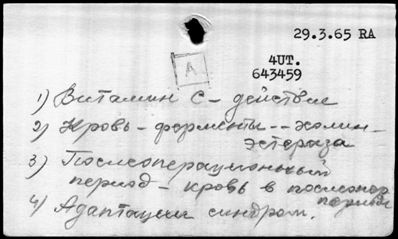 29.3.65 RA
4UT.
643459
A
1) Витамин С - действие
2) Кровь - ферменты -- холин-
эстераза
3) Послеоперационный
период - кровь в послеопер.
периоде
4) Адаптации синдром.